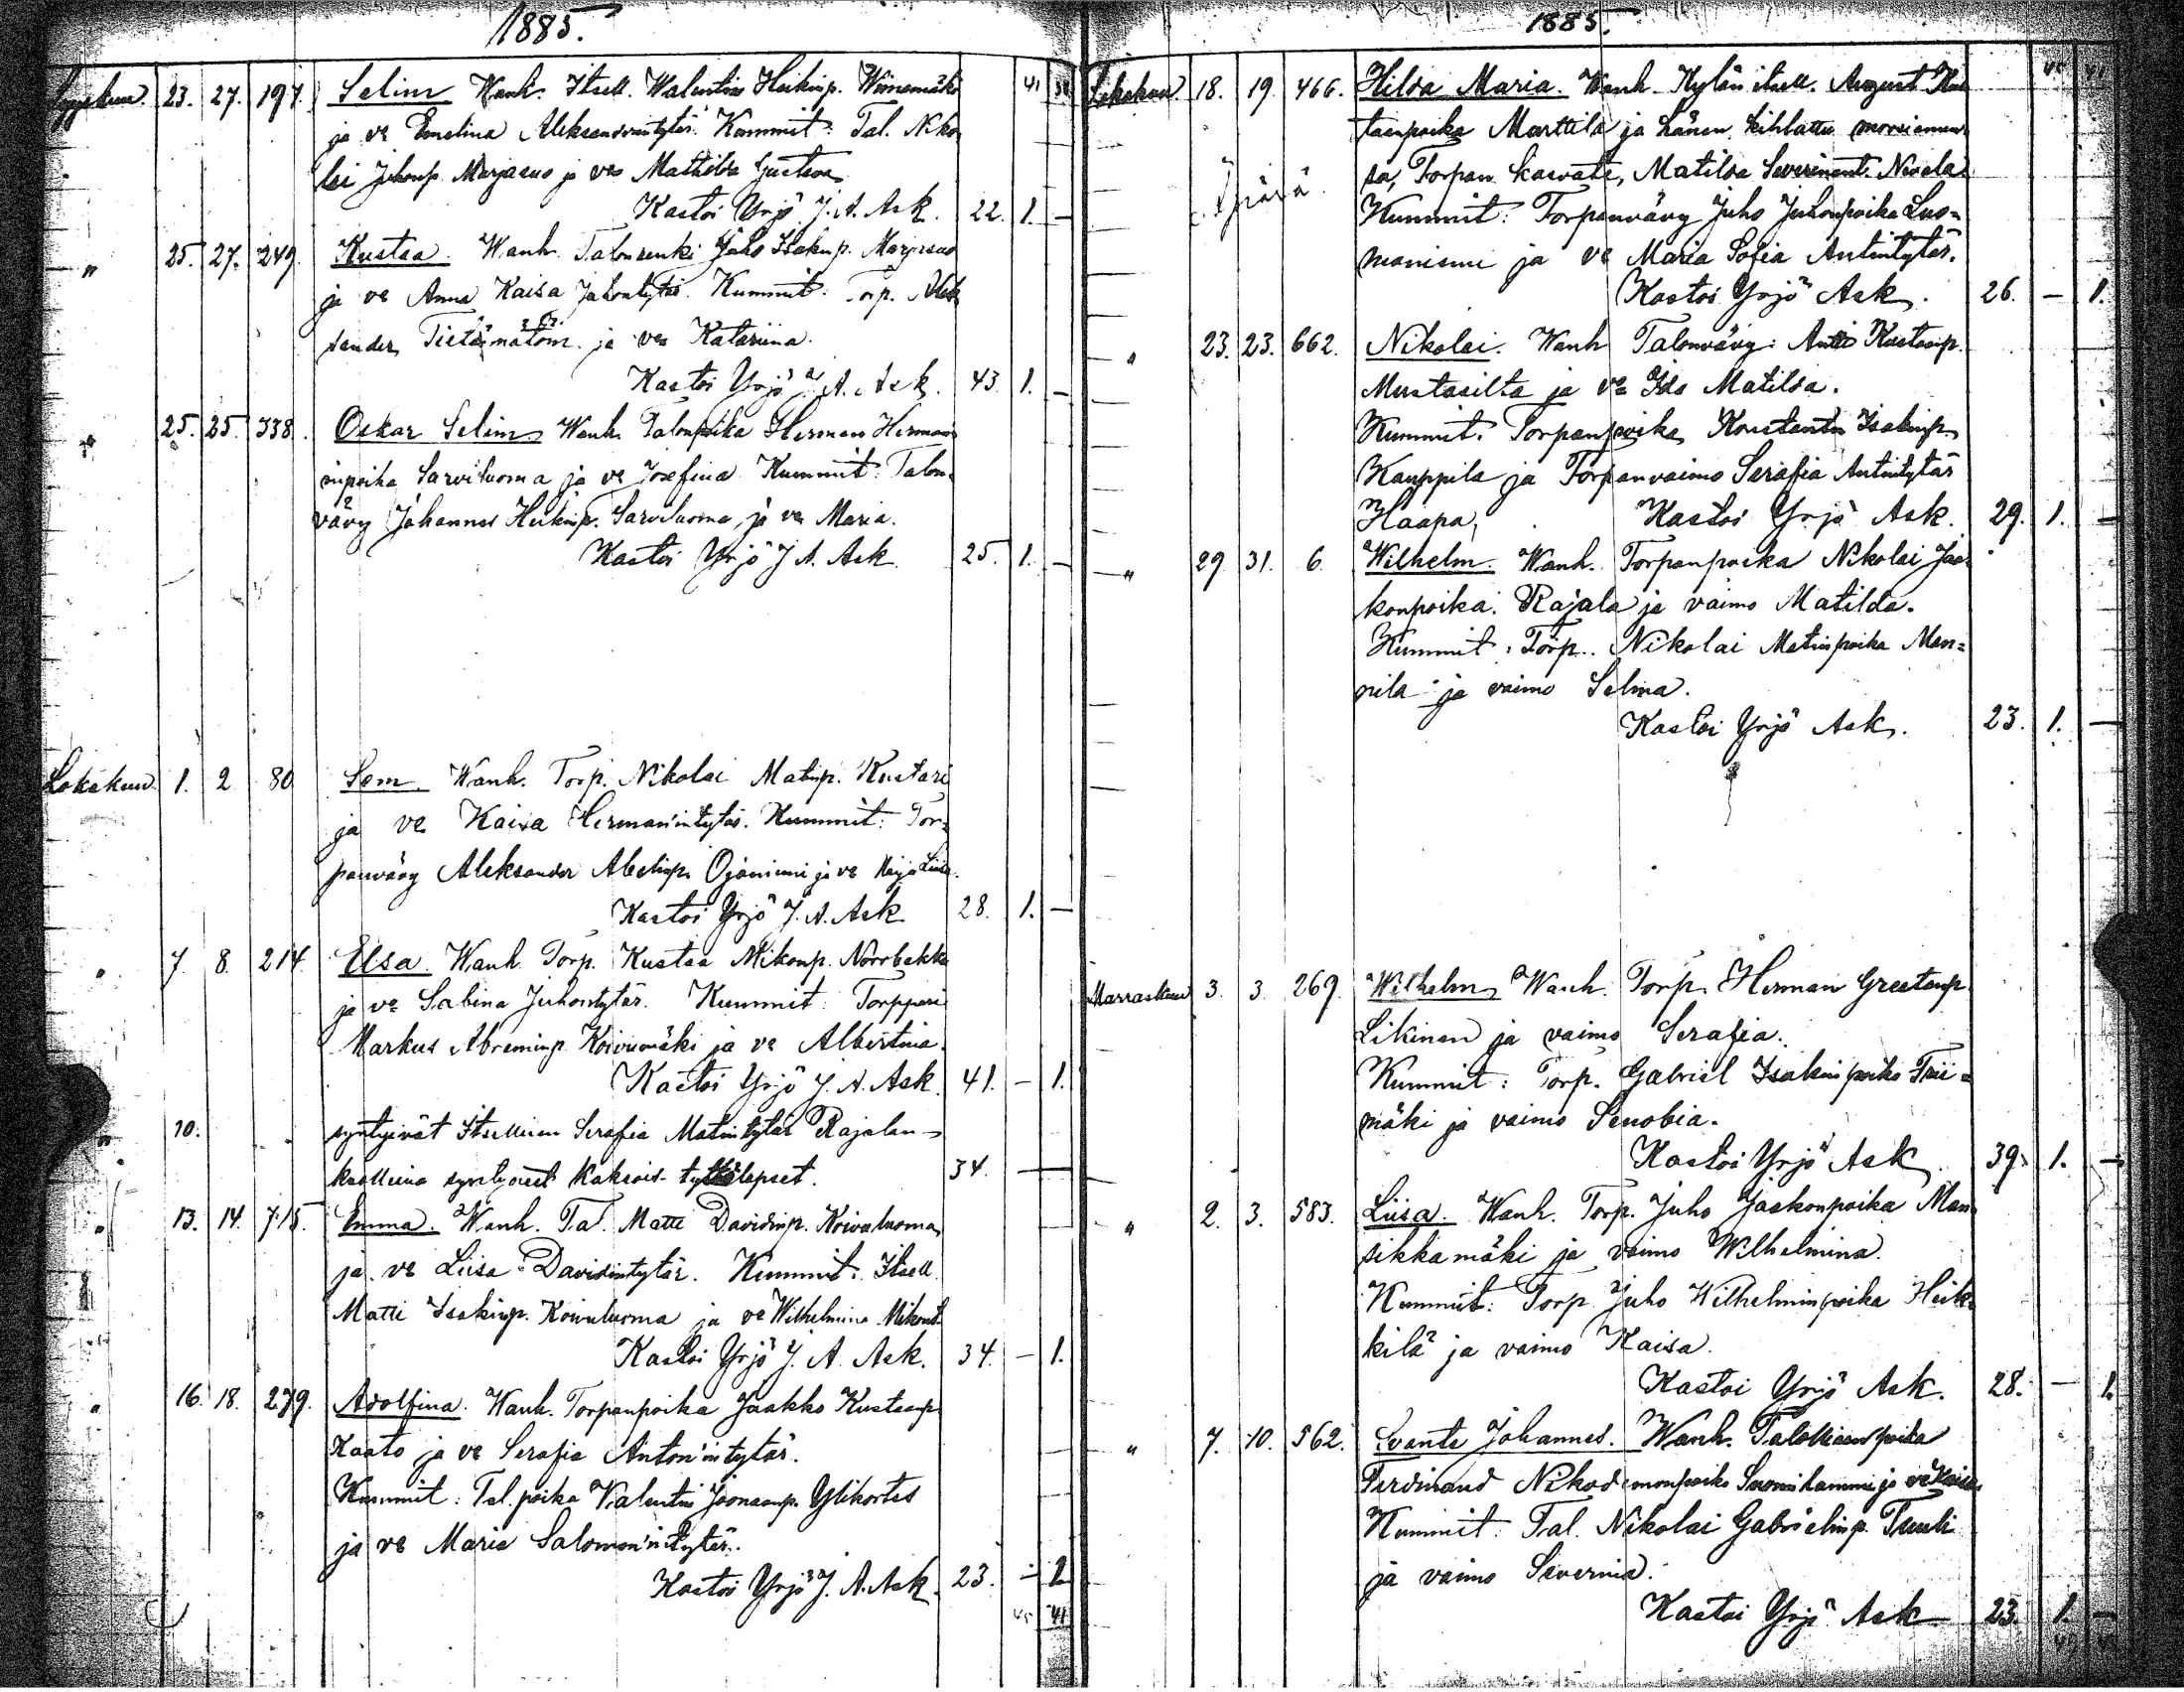 1885.
41 38
Syyskuu. 23. 27. 197. Selim. Wanh. Itsell. Walentin Heikinp. Wiinamäki
ja vo Emelina Aleksanderintytär. Kummit: Tal. Niko
lai Juhonp. Marjasuo ja vo Mathilda Gustava
Kastoi Yrjö J. A. Ask. 22. 1. —
" 25. 27. 249. Kustaa. Wanh. Talonrenki Juho Isakinp. Marjasuo
ja vo Anna Kaisa Juhontytär. Kummit: Torp. Alek
sander Tietämätöin ja vo Katariina.
Kastoi Yrjö J. A. Ask. 43. 1. —
" 25. 25. 338. Oskar Selim. Wanh. Talonpoika Herman Herman
inpoika Sarviluoma ja vo Josefina. Kummit: Talon
vävy Johannes Heikinp. Sarviluoma ja vo Maria.
Kastoi Yrjö J. A. Ask. 25. 1. —
Lokakuu. 1. 2 80 Sem. Wanh. Torp. Nikolai Matinp. Kustari
ja vo Kaisa Herman'intytär. Kummit: Tor=
panvävy Aleksander Abelinp. Ojaniemi ja vo Maja Liisa.
Kastoi Yrjö J. A. Ask 28. 1. —
" 7. 8. 214. Elsa. Wanh. Torp. Kustaa Mikonp. Norrbakka
ja vo Sabina Juhontytär. Kummit: Torppari
Markus Abraminp. Koivumäki ja vo Albertina.
Kastoi Yrjö J. A. Ask. 41. — 1.
" 10. syntyivät Itsellisen Serafia Matintytär Rajalan
kuolleina syntyneet kaksois-tyttölapset. 34. —
" 13. 14. 715. Emma. Wanh. Tal. Matti Davidinp. Koivuluoma
ja vo Liisa Davidintytär. Kummit: Itsell.
Matti Isakinp. Koivuluoma ja vo Wilhelmina Mikont.
Kastoi Yrjö J. A. Ask. 34. — 1.
" 16. 18. 279. Adolfina. Wanh. Torpanpoika Jaakko Kustaanp.
Kaato ja vo Serafia Anton'intytär.
Kummit: Tal. poika Walentin Joonaanp. Ylikortes
ja vo Maria Salomon'intytär.
Kastoi Yrjö J. A. Ask. 23. — 1.
45 41
1885.
45 41
Lokakuu. 18. 19. 466. Hilda Maria. Wanh. Kylän itsell. August Kus
taanpoika Marttila ja hänen kihlattu morsiamen=
Äpärä sa, Torpan kasvatti, Matilda Severinint. Nevala.
Kummit: Torpanvävy Juho Juhonpoika Luo=
maniemi ja vo Maria Sofia Antintytär.
Kastoi Yrjö Ask. 26. — 1.
" 23. 23. 662. Nikolai. Wanh Talonvävy: Antti Kustaanp.
Mustasilta ja vo Ida Matilda.
Kummit. Torpanpoika Konstantin Isakinp.
Kauppila ja Torpanvaimo Serafia Antintytär
Haapa, Kastoi Yrjö Ask. 29. 1. —
" 29 31. 6. Wilhelm. Wanh. Torpanpoika Nikolai Jaa=
konpoika Rajala ja vaimo Matilda.
Kummit: Torp. Nikolai Matinpoika Man=
nila ja vaimo Selma.
Kastoi Yrjö Ask. 23. 1. —
Marraskuu 3. 3. 269. Wilhelm Wanh. Torp. Herman Greetanp.
Likinen ja vaimo Serafia.
Kummit: Torp. Gabriel Isakinpoika Trii=
mäki ja vaimo Senobia.
Kastoi Yrjö Ask. 39. 1. —
" 2. 3. 583. Liisa. Wanh. Torp. Juho Jaakonpoika Man
sikkamäki ja vaimo Wilhelmina.
Kummit: Torp. Juho Wilhelminpoika Heik=
kilä ja vaimo Kaisa.
Kastoi Yrjö Ask. 28. — 1.
" 7. 10. 562. Svante Johannes. Wanh. Talollisenpoika
Ferdinand Nikodemonpoika Luomihammi ja vo Kaisa
Kummit: Tal. Nikolai Gabrielinp. Tuuli
ja vaimo Severina.
Kastoi Yrjö Ask 23. 1. —